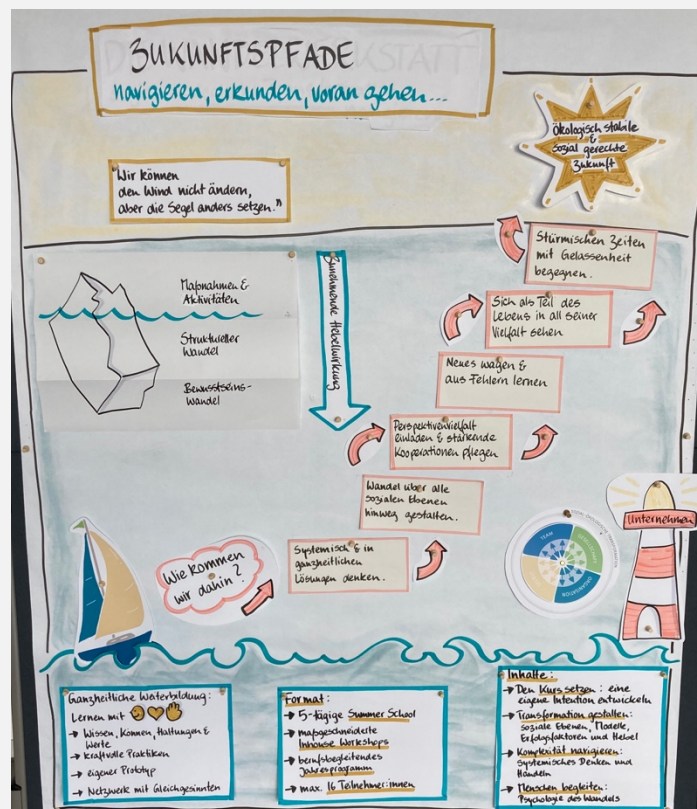 ZUKUNFTSPFADE
navigieren, erkunden, voran gehen...
Ökologisch stabile
&
sozial gerechte
Zukunft
"Wir können
den Wind nicht ändern,
aber die Segel anders setzen."
Stürmischen Zeiten
mit Gelassenheit
begegnen.
Maßnahmen &
Aktivitäten
Struktureller
Wandel
Bewusstseins-
Wandel
Zunehmende Hebelwirkung
Sich als Teil des
Lebens in all seiner
Vielfalt sehen
Neues wagen &
aus Fehlern lernen
Perspektivenvielfalt
einladen & stärkende
Kooperationen pflegen
Wandel über alle
sozialen Ebenen
hinweg gestalten.
Systemisch & in
ganzheitlichen
Lösungen denken.
Wie kommen
wir dahin?
TEAM
GESELLSCHAFT
ORGANISATION
Unternehmen
Ganzheitliche Weiterbildung:
Lernen mit
→ Wissen, Können, Haltungen &
Werte
→ kraftvolle Praktiken
→ eigener Prototyp
→ Netzwerk mit Gleichgesinnten
Format:
→ 5-tägige Summer School
→ maßgeschneiderte
Inhouse Workshops
→ berufsbegleitendes
Jahresprogramm
→ max. 16 Teilnehmer:innen
Inhalte:
→ Den Kurs setzen: eine
eigene Intention entwickeln
→ Transformation gestalten:
soziale Ebenen, Modelle,
Erfolgsfaktoren und Hebel
→ Komplexität navigieren:
systemisches Denken und
Handeln
→ Menschen begleiten:
Psychologie des Wandels